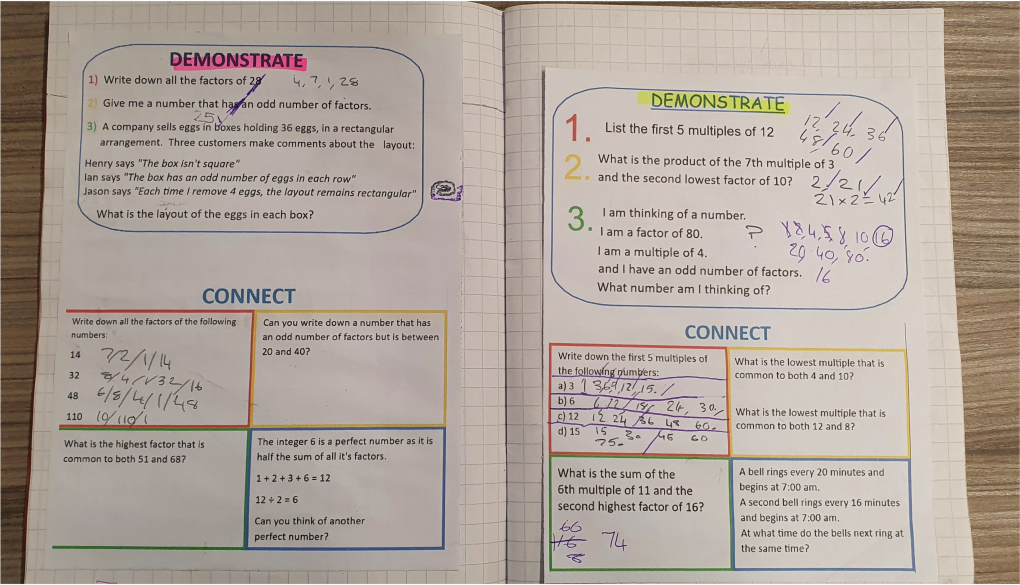 DEMONSTRATE
1) Write down all the factors of 28 4, 7, 1, 28
2) Give me a number that has an odd number of factors.
25
3) A company sells eggs in boxes holding 36 eggs, in a rectangular
arrangement. Three customers make comments about the layout:
Henry says "The box isn't square"
Ian says "The box has an odd number of eggs in each row"
Jason says "Each time I remove 4 eggs, the layout remains rectangular"
What is the layout of the eggs in each box?
CONNECT
Write down all the factors of the following
numbers:
14 7/2/1/14
32 8/4/1/32/16
48 6/8/4/1/48
110 10/110/1
Can you write down a number that has
an odd number of factors but is between
20 and 40?
What is the highest factor that is
common to both 51 and 68?
The integer 6 is a perfect number as it is
half the sum of all it's factors.
1 + 2 + 3 + 6 = 12
12 ÷ 2 = 6
Can you think of another
perfect number?
DEMONSTRATE
1. List the first 5 multiples of 12
12/ 24/ 36/
48/ 60/
2. What is the product of the 7th multiple of 3
and the second lowest factor of 10?
2/ 21/
21 x 2 = 42
3. I am thinking of a number.
I am a factor of 80. ? 4, 5 8 10 16
I am a multiple of 4. 20 40, 80.
and I have an odd number of factors. 16
What number am I thinking of?
CONNECT
Write down the first 5 multiples of
the following numbers:
a) 3 3 6, 9, 12, 15.
b) 6 6, 12, 18, 24, 30,
c) 12 12 24 36 48 60.
d) 15 15 30 45 60
75.
What is the lowest multiple that is
common to both 4 and 10?
What is the lowest multiple that is
common to both 12 and 8?
What is the sum of the
6th multiple of 11 and the
second highest factor of 16?
66
8
74
A bell rings every 20 minutes and
begins at 7:00 am.
A second bell rings every 16 minutes
and begins at 7:00 am.
At what time do the bells next ring at
the same time?